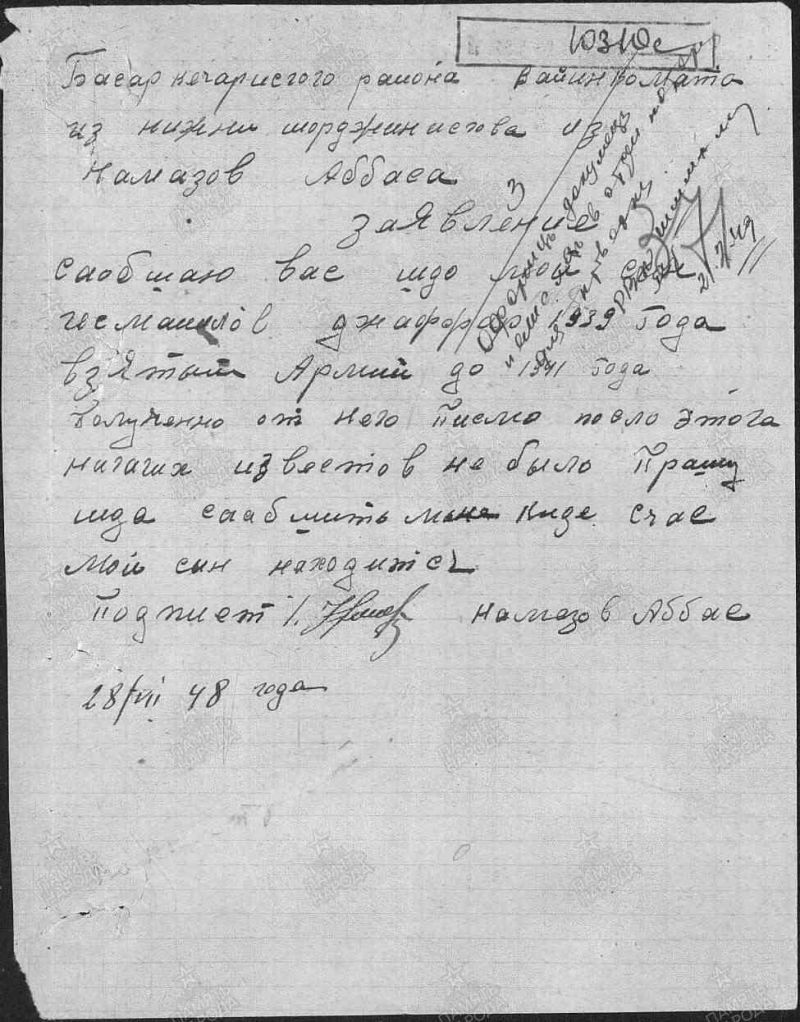 10310с
Басаркечарисгого района Вайингомата
из нижни шорджинистова из
Намазов Аббаса
заявление
саобшаю вас шдо мой сын
гесмаилов джаффар 1939 года
взятый Армий до 1941 года
Полученно от него Писмо посло этога
нигагих известов не было Прашу
шда саабшить мене киде счас
мой сын находитсь
Подпист Намазов Аббас
28/VII 48 года
Оформить документ
для
21/X 49